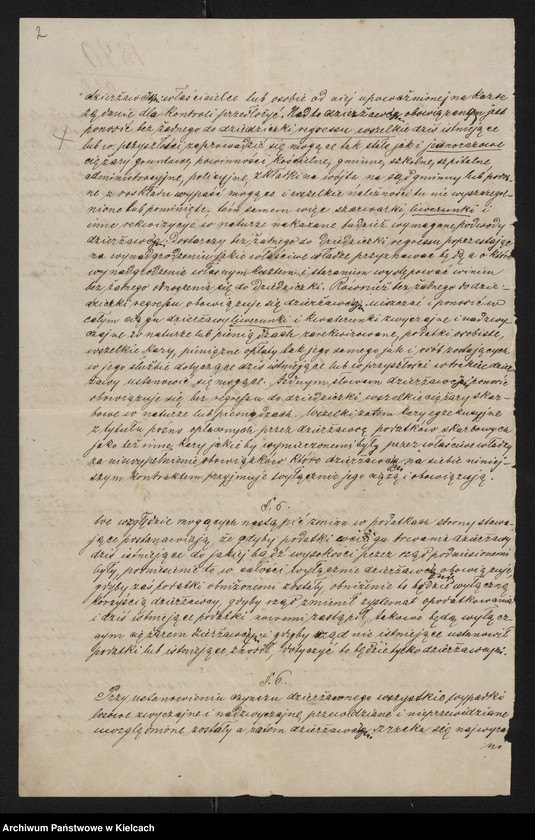 2
dzierżawczyni właścicielce lub osobie od niej upoważnionej na każde
żądanie dla kontroli przedłożyć. Nadto dzierżawczyni obowiązanym jest
ponosić bez żadnego do dziedziczki regresu wszelkie dziś istniejące
lub w przyszłości zaprowadzić się mogące tak stałe jak i jednorazowe
ciężary gruntowe, powinności kościelne, gminne, szkolne, szpitalne
administracyjne, policyjne, składki na wójta na sąd gminny lub podo-
z rozkładu wypaść mogące i wszelkie należności tu nie wyszczegól-
nione lub pominięte, tem samem więc szarwarki, liwerunki i
inne rekwizycye w naturze nakazane tudzież wymagane podwody
dzierżawczyni dostarczy bez żadnego do dziedziczki regresu poprzestając
na wynagrodzeniu jakie właściwe władze przyznawać będą a o które
wynagrodzenie własnym kosztem i staraniem występować winien
bez żadnego odnoszenia się do dziedziczki. Również bez żadnego do dzie-
dziczki regresu obowiązuje się dzierżawczyni uiszczać i ponosić w
całym ciągu dzierżawy liwerunki i kwaterunki zwyczajne i nadzwy-
czajne w naturze lub pieniądzach zarekwirowane, podatki osobiste,
wszelkie kary, pieniężne opłaty tak jego samego jak i osób zostających
w jego służbie dotyczące dziś istniejące lub w przyszłości w trakcie dzier-
żawy ustanowić się mogące. Jednym słowem dzierżawczyni ponosić
obowiązuje się bez regresu do dziedziczki wszelkie ciężary skar-
bowe w naturze lub pieniądzach. Wszelkie zatem kary egzekucyjne
z tytułu późno opłaconych przez dzierżawcę podatków skarbowych
jako też inne kary jakie by wymierzonemi były przez właściwe władze
za niewypełnienie obowiązków które dzierżawczyni na siebie niniej-
szym kontraktem przyjmuje wyłącznie jego ciążą i obowiązują.
§. 5.
We względzie mogących nastąpić zmian w podatkach strony stawa-
jące postanawiają, że gdyby podatki w ciągu trwania dzierżawy
dziś istniejące do jakiej bądź wysokości przez rząd podniesionemi
były, podniesienie to w całości wyłącznie dzierżawczynię obowiązuje,
gdyby zaś podatki obniżonemi zostały, obniżenie to będzie wyłączną
korzyścią dzierżawcy, gdyby rząd zmienił systemat opodatkowania
i dziś istniejące podatki nowemi zastąpił, takowe będą wyłącz-
nym ciężarem dzierżawczyni i gdyby rząd nie istniejące ustanowił
podatki lub istniejące zniósł, dotyczyć to będzie tylko dzierżawczyni.
§. 6.
Przy ustanowieniu czynszu dzierżawnego wszystkie wypadki
losowe zwyczajne i nadzwyczajne, przewidziane i nieprzewidziane
uwzględnione zostały a zatem dzierżawczyni zrzeka się najwyra-
Archiwum Państwowe w Kielcach